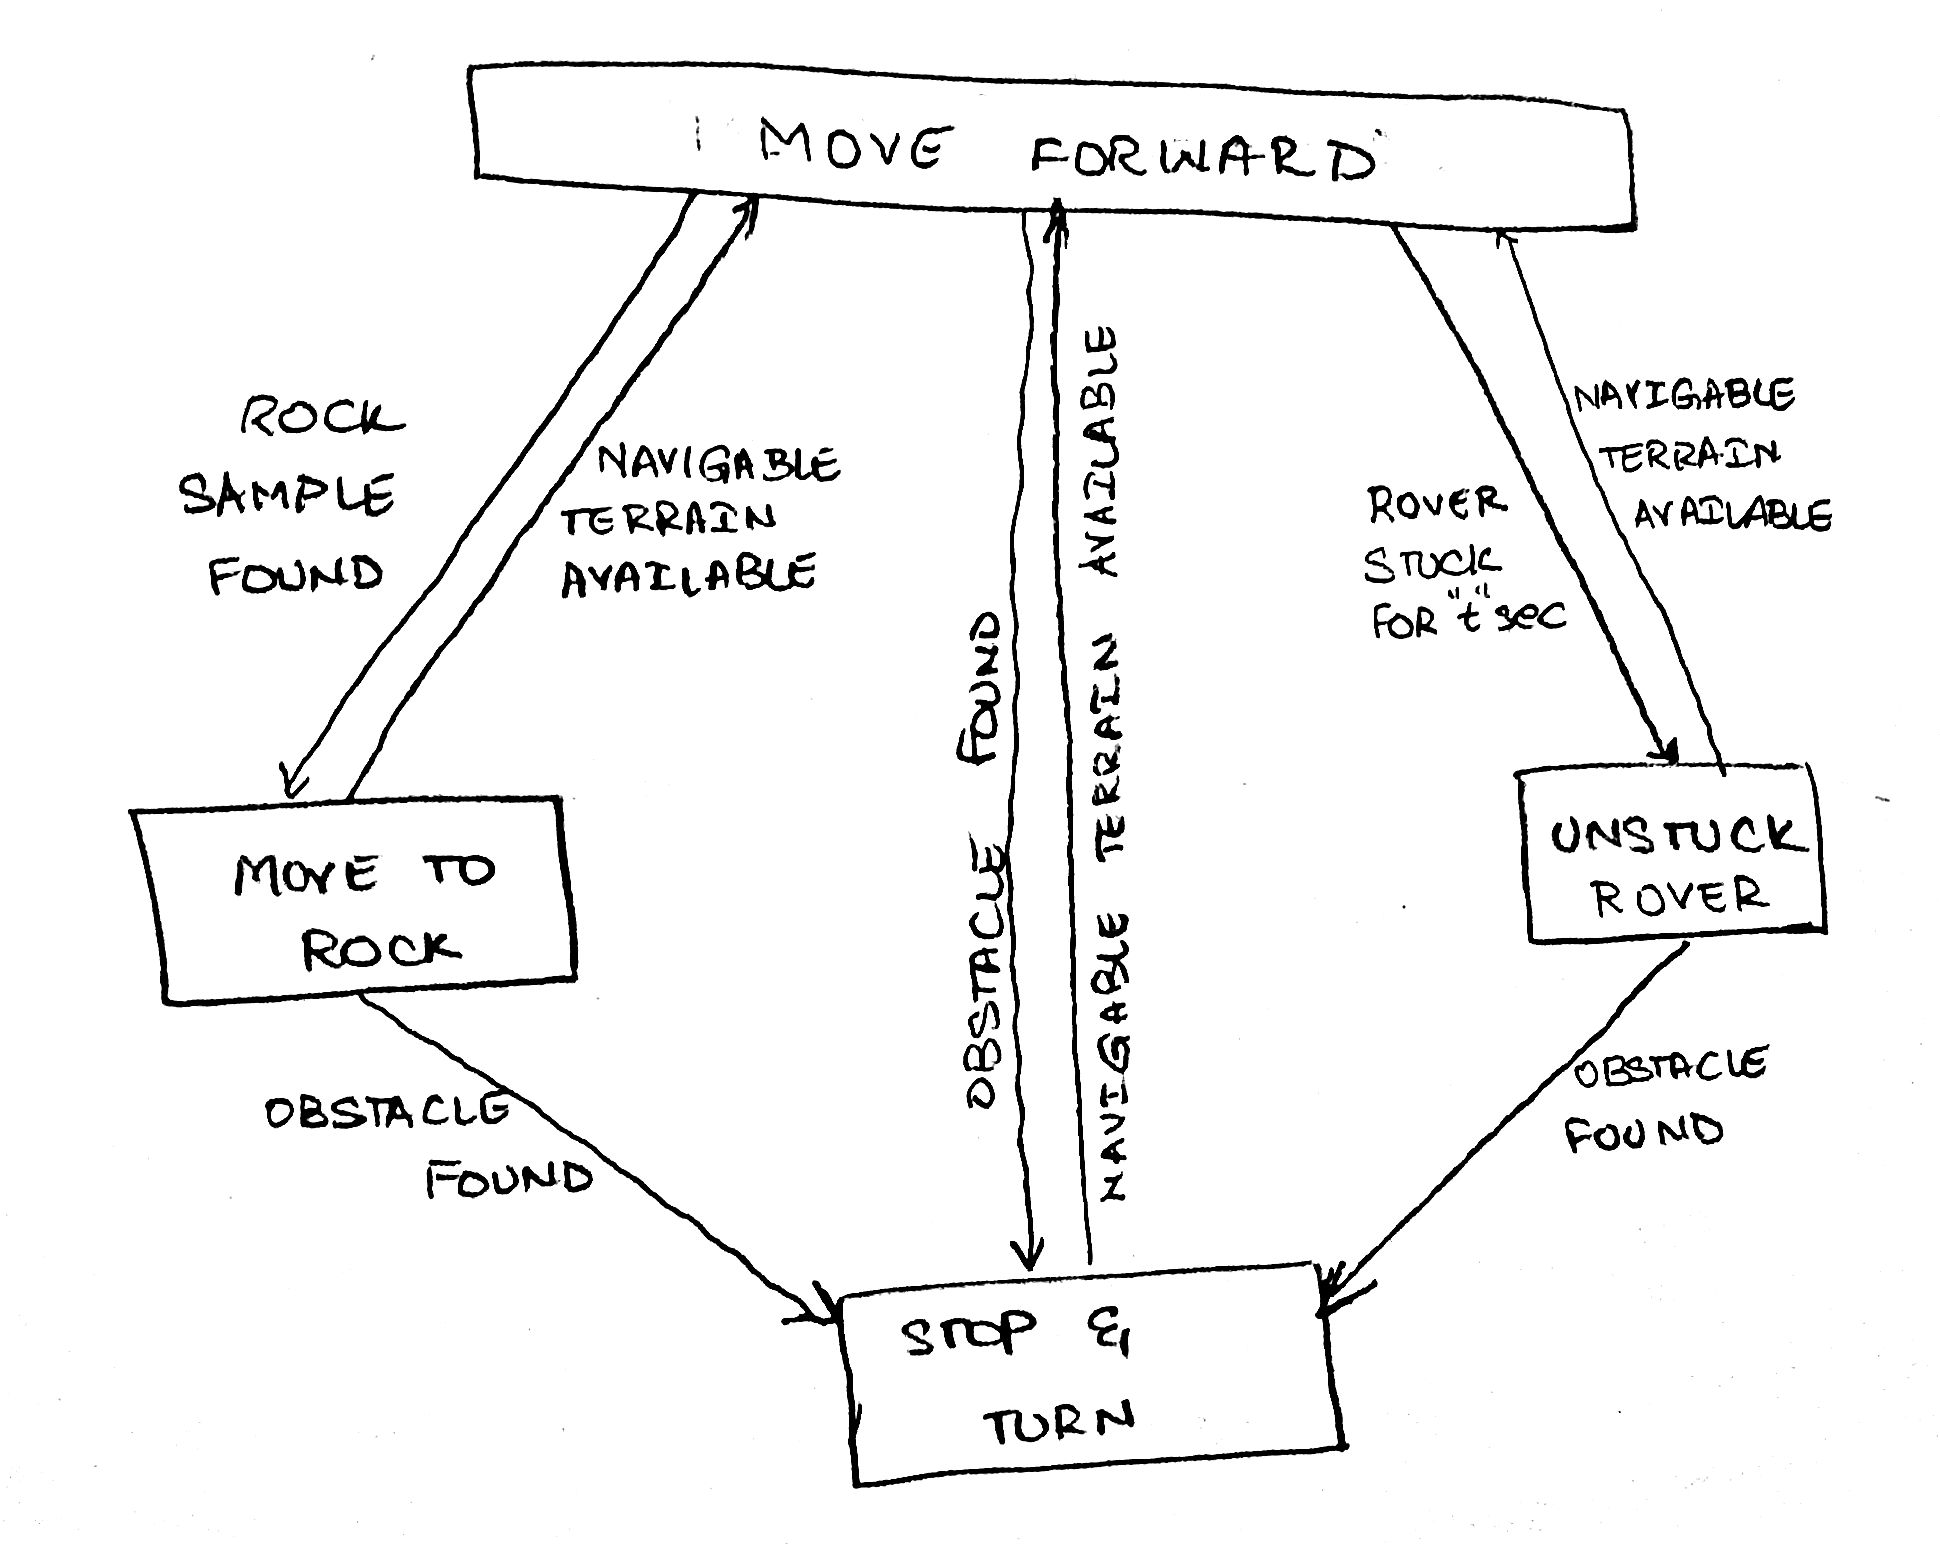 MOVE FORWARD
ROCK
SAMPLE
FOUND
NAVIGABLE
TERRAIN
AVAILABLE
OBSTACLE FOUND
NAVIGABLE TERRAIN AVAILABLE
ROVER
STUCK
FOR "t" sec
NAVIGABLE
TERRAIN
AVAILABLE
MOVE TO
ROCK
UNSTUCK
ROVER
OBSTACLE
FOUND
OBSTACLE
FOUND
STOP &
TURN